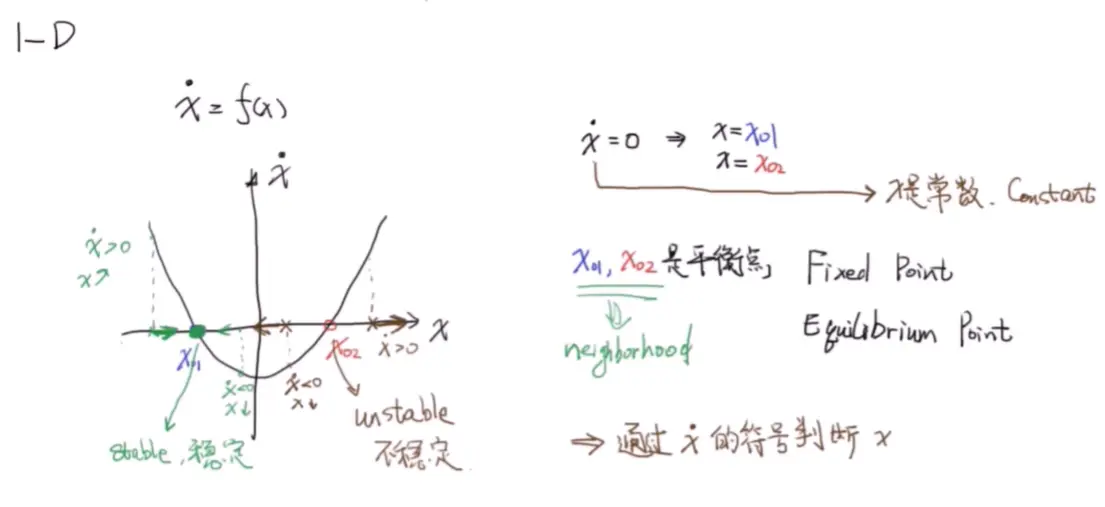 1-D
ẋ = f(x)
ẋ
ẋ>0
x↗
x
x01
x02
ẋ<0
x↓
ẋ<0
x↓
ẋ>0
stable, 稳定
unstable
不稳定
ẋ=0 ⇒ x=x01
x=x02
x是常数. Constant
x01, x02 是平衡点, Fixed Point
Equilibrium Point
neighborhood
⇒ 通过 ẋ 的符号判断 x